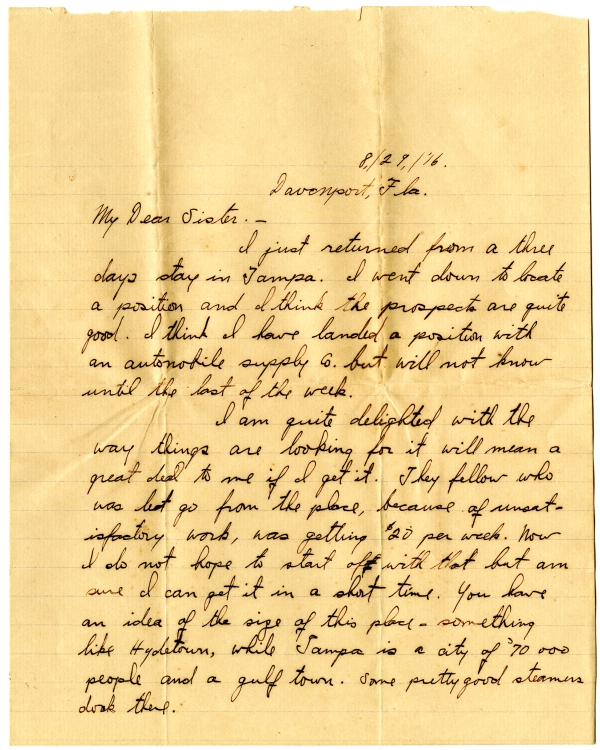 8,/29,/'16.
Davenport, Fla.
My Dear Sister. –
I just returned from a three
days stay in Tampa. I went down to locate
a position and I think the prospects are quite
good. I think I have landed a position with
an automobile supply Co. but will not know
until the last of the week.
I am quite delighted with the
way things are looking for it will mean a
great deal to me if I get it. They fellow who
was let go from the place, because of unsat-
isfactory work, was getting $20 per week. Now
I do not hope to start off with that but am
sure I can get it in a short time. You have
an idea of the size of this place – something
like Hydetown, while Tampa is a city of 70 000
people and a gulf town. Some pretty good steamers
dock there.